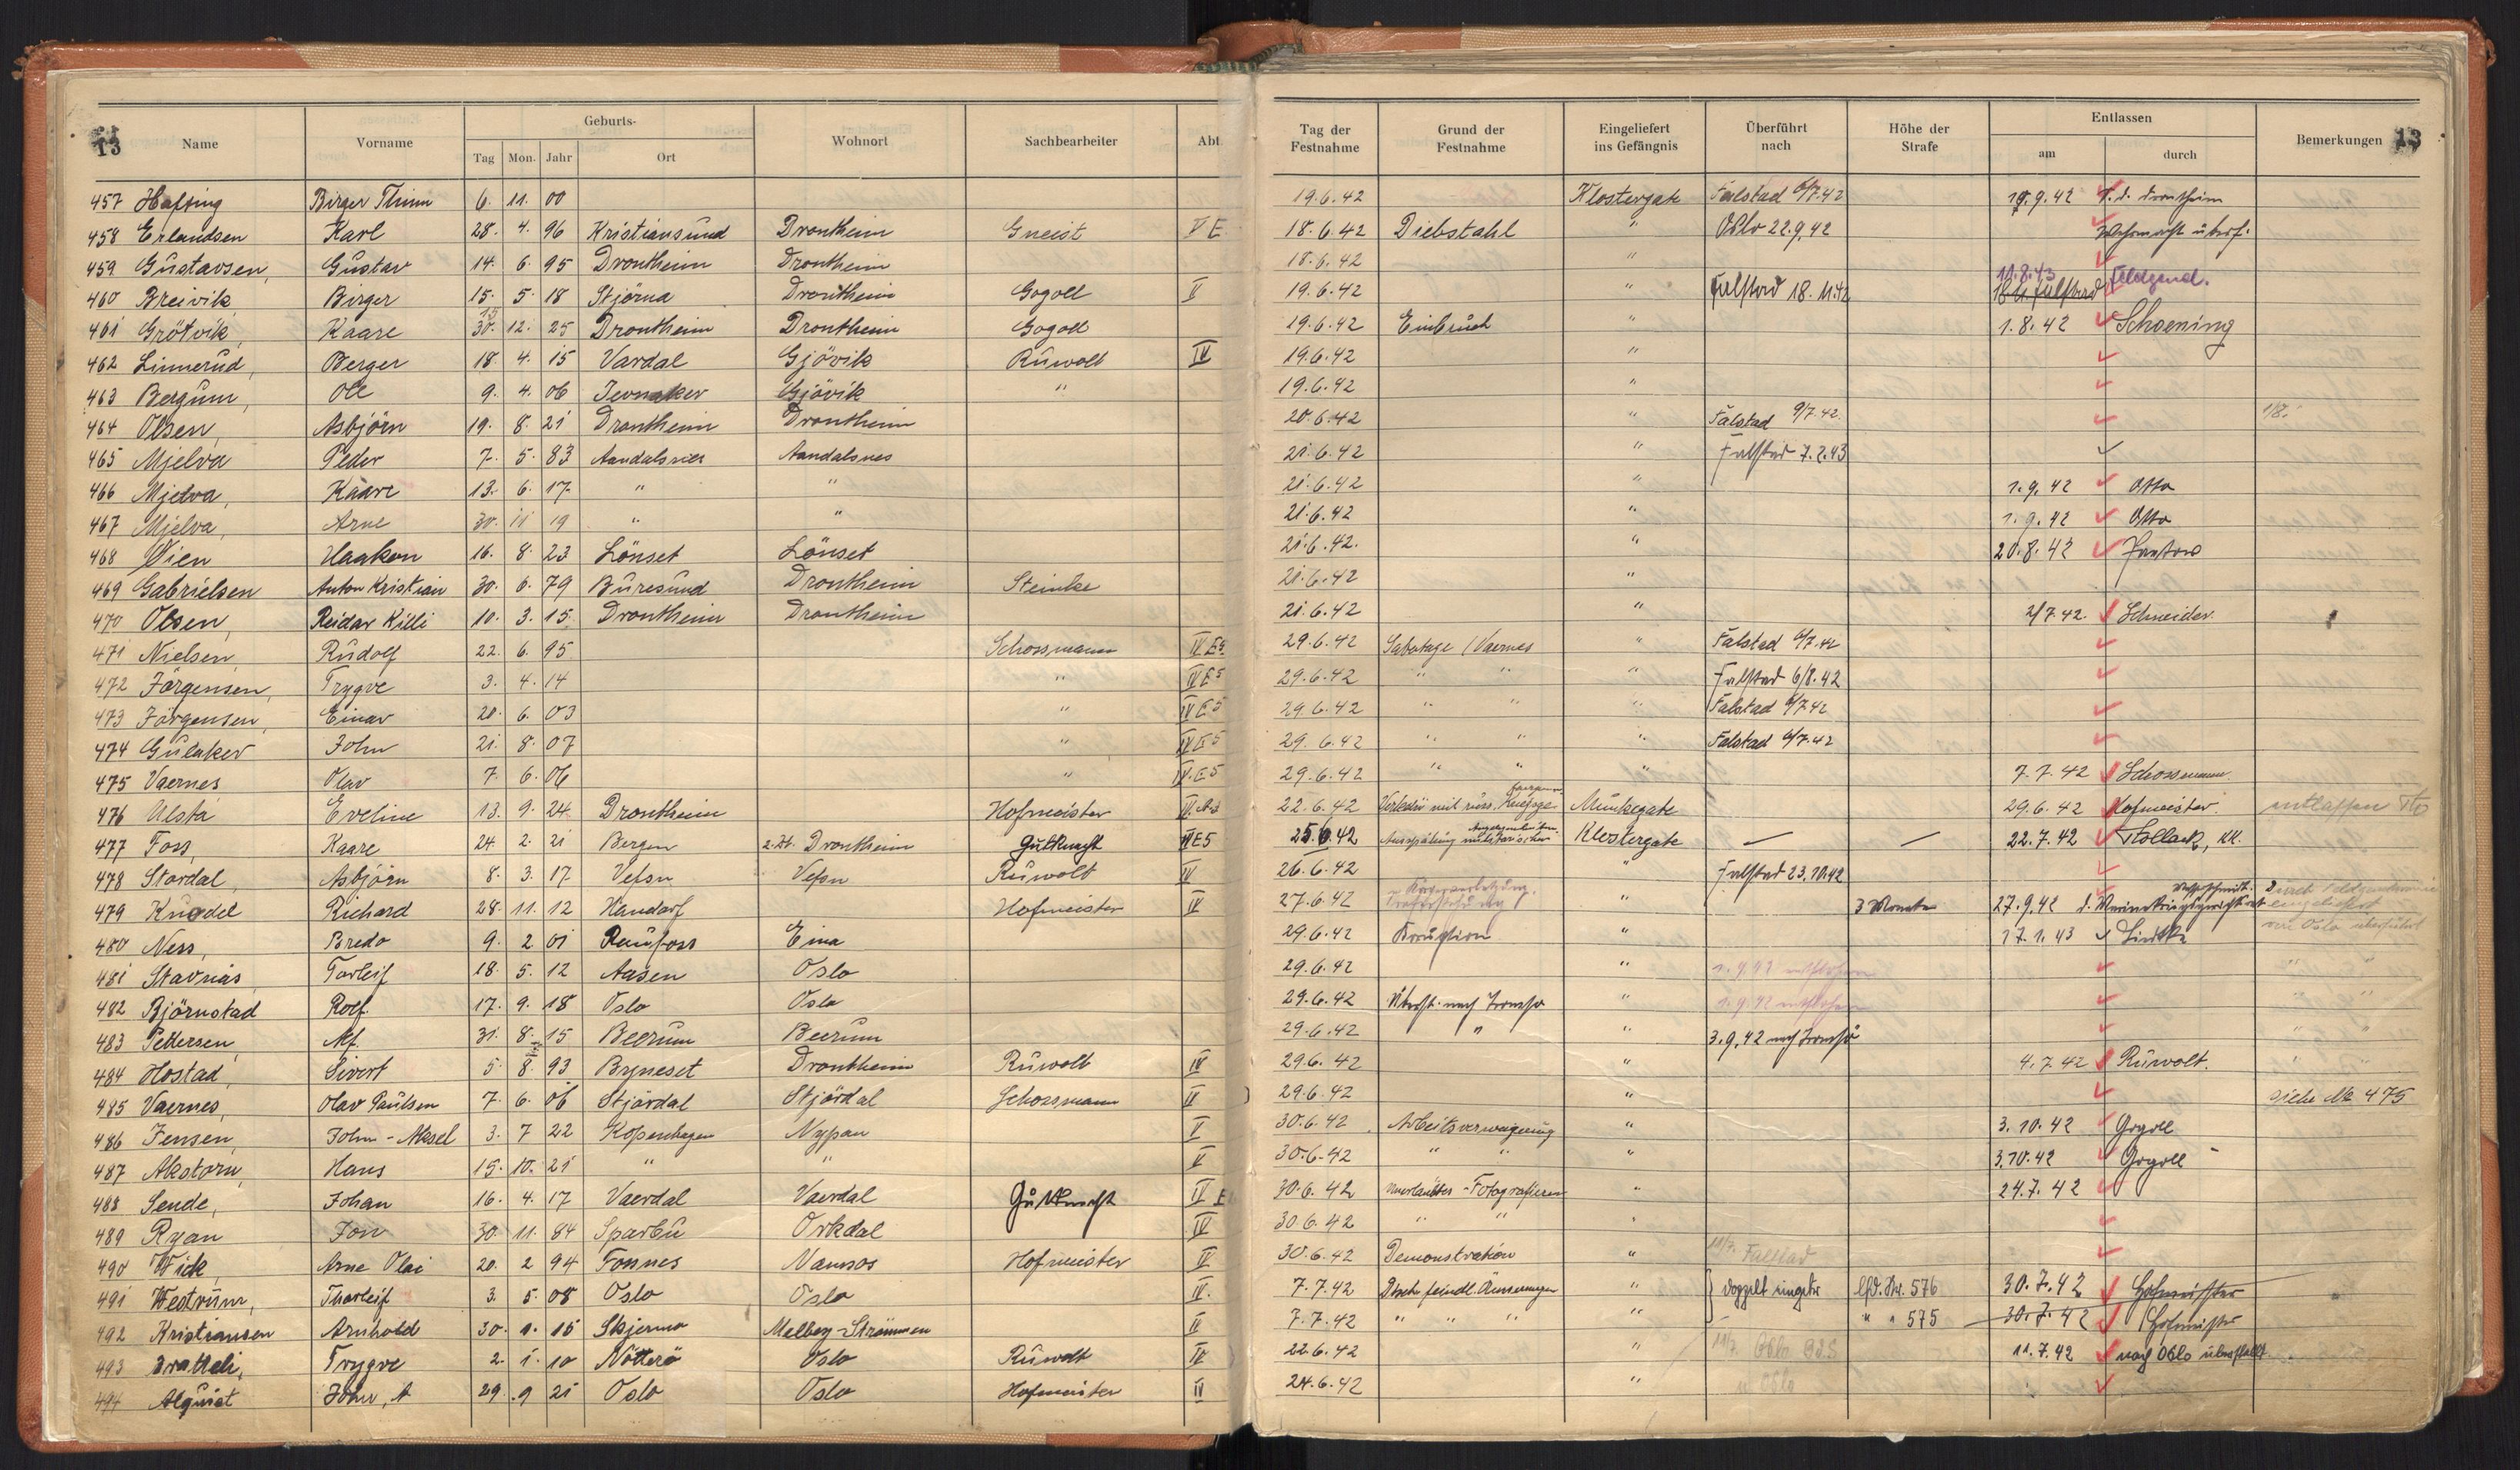 13 Name Vorname Geburts- Wohnort Sachbearbeiter Abt. Tag der Festnahme Grund der Festnahme Eingeliefert ins Gefängnis Überführt nach Höhe der Strafe Entlassen Bemerkungen 13
Tag Mon. Jahr Ort am durch
457 Hafting Birger Thinn 6. 11. 00 19.6.42 Klostergate Falstad 6/7.42 19.9.42 n. d. Drontheim
458 Erlandsen Karl 28. 4. 96 Kristiansund Drontheim Gneist V E 18.6.42 Diebstahl " Oslo 22.9.42 Wehrmacht überf.
459 Gustavsen, Gustav 14. 6. 95 Drontheim Drontheim 18.6.42 "
460 Breivik Birger 15. 5. 18 Stjörna Drontheim Gogoll V 19.6.42 " Falstad 18.11.42 11.8.43 18.11. Falstad Feldgend.
461 Grötvik, Kaare 30. 12. 25 Drontheim Drontheim Gogoll 19.6.42 Einbruch " 1.8.42 Schoening
462 Linnerud, Berger 18. 4. 15 Vardal Gjövik Ruwolt IV 19.6.42 "
463 Bergum, Ole 9. 4. 06 Jevnaker Gjövik " 19.6.42 "
464 Olsen, Asbjörn 19. 8. 21 Drontheim Drontheim 20.6.42 " Falstad 9/7.42. 1/8.
465 Mjelva Peder 7. 5. 83 Aandalsnes Aandalsnes 21.6.42 " Falstad 7.2.43
466 Mjelva, Kaare 13. 6. 17 " " 21.6.42 " 1.9.42 Otto
467 Mjelva, Arne 30. 11 19 " " 21.6.42 " 1.9.42 Otto
468 Vien Haakon 16. 8. 23 Lönset Lönset 21.6.42. " 20.8.42
469 Gabrielsen Anton Kristian 30. 6. 79 Buresund Drontheim Steinke 21.6.42 "
470 Olsen, Reidar Killi 10. 3. 15. Drontheim Drontheim 21.6.42 " 2/7.42. Schneider.
471 Nielsen, Rudolf 22. 6. 95 Schossmann IV E5 29.6.42 Sabotage / Vaernes " Falstad 6/7.42
472 Jörgensen, Trygve 3. 4. 14 " IV E5 29.6.42 " " " Falstad 6/8.42
473 Jörgensen, Einar 20. 6. 03 " IV E5 29.6.42 " " " Falstad 6/7.42
474 Gulaker John 21. 8. 07 " IV E5 29.6.42 " " " Falstad 6/7.42
475 Vaernes Olav 7. 6. 06 " IV.E5 29.6.42 " " " 7.7.42 Schossmann.
476 Ulstá Eveline 13. 9. 24 Drontheim Hofmeister 22.6.42 Verkehr mit russ. Kriegsge- fangenen Munkegate 29.6.42 Hofmeister. entlassen
477 Foss, Kaare 24. 2. 21 Bergen z.Zt. Drontheim Gutknecht IVE5 25.6.42 Ausspähung militärischer Klostergate — — 22.7.42 Pollack, KK.
478 Stordal, Asbjörn 8. 3. 17 Vefsn Vefsn Ruwolt IV 26.6.42 " Falstad 23.10.42
479 Knodel Richard 28. 11. 12 Handorf Hofmeister IV 27.6.42 " 3 Monate 27.9.42 d. Marinekriegsgericht Durch Feldgendarmerie eingeliefert
480 Ness, Bredo 9. 2 01 Raufoss Eina 29.6.42 Korruption " 17.1.43 von Oslo überführt
481 Stavnäs Torleif 18. 5. 12 Aasen Oslo 29.6.42 " " "
482 Björnstad Rolf 17. 9. 18 Oslo Oslo 29.6.42 nach Tromsö " " "
483 Pettersen Alf. 31. 8. 15 Beerum Beerum 29.6.42 " " 3.9.42 nach Tromsö " "
484 Hostad, Sivert 5. 8. 93 Byneset Drontheim Ruwolt IV 29.6.42 " 4.7.42 Ruwolt. " "
485 Vaernes, Olav Paulsen 7. 6. 06 Stjördal Stjördal Schossmann IV 29.6.42 " siehe No 475
486 Jensen, John - Aksel 3. 7 22 Kopenhagen Nypan V 30.6.42 Arbeitsverweigerung " 3.10.42 Gogoll
487 Akstorn, Hans 15. 10. 21 " " V 30.6.42 " " " 3.10.42 Gogoll
488 Sende, Johan 16. 4. 17 Vaerdal Vaerdal Gutknecht IV E 30.6.42 unerlaubtes - Fotografieren " 24.7.42
489 Ryan Jon 30. 11. 84 Sparbu Orkdal IV 30.6.42 " " "
490 Wick, Arne Olai 20. 2 94 Fosnes Namsos Hofmeister IV 30.6.42 Demonstration " 11/7. Falstad
491 Westrum, Thorleif 3. 5. 08 Oslo Oslo IV. 7.7.42 Dtsch. feindl. Äusserungen " doppelt eingetr. lfd. Nr. 576 30.7.42 Hofmeister
492 Kristiansen Arnhold 30. 1. 15 Skjerma Melbey-Strömmen IV 7.7.42 " " " " " " 575 30.7.42 Hofmeister
493 Bratteli, Trygve 2. 1. 10 Nötterö Oslo Ruwolt IV 22.6.42 " 11/7. Oslo 11.7.42 nach Oslo überstellt
494 Alquist John, A 29. 9 21 Oslo Oslo Hofmeister IV 24.6.42 " Oslo